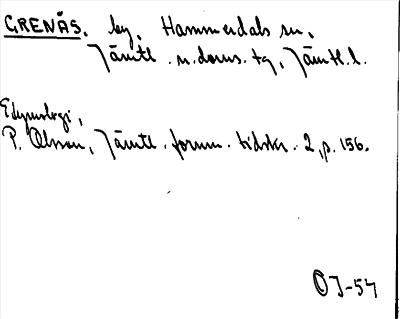 GRENÅS. by, Hammerdals sn,
Jämtl. n. doms. tg, Jämtl. l.
Etymologi,
P. Olsson, Jämtl. fornm. tidskr. 2, p. 156.
OJ-54